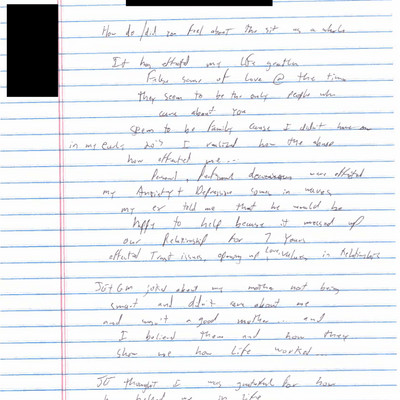 How do/did you feel about the sit as a whole
It has affected my life greatly
False sense of love @ the time
they seem to be the only people who
care about you
seem to be family cause I didn't have one
in my early 20's I realized how the abuse
how affected me...
Personal, Relational were affected
my Anxiety + Depression comes in waves
my er told me that he would be
happy to help because it messed up
our Relationship for 7 Years
affected Trust issues, opening up Love, values, in Relationships
JG + GM joked about my mother not being
smart and didn't care about me
and wasn't a good mother... and
I believed them and how they
show me how Life worked...
JG thought I was grateful for how
he helped me in life